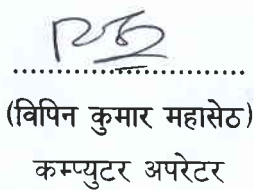 ....................................
(विपिन कुमार महासेठ)
कम्प्युटर अपरेटर